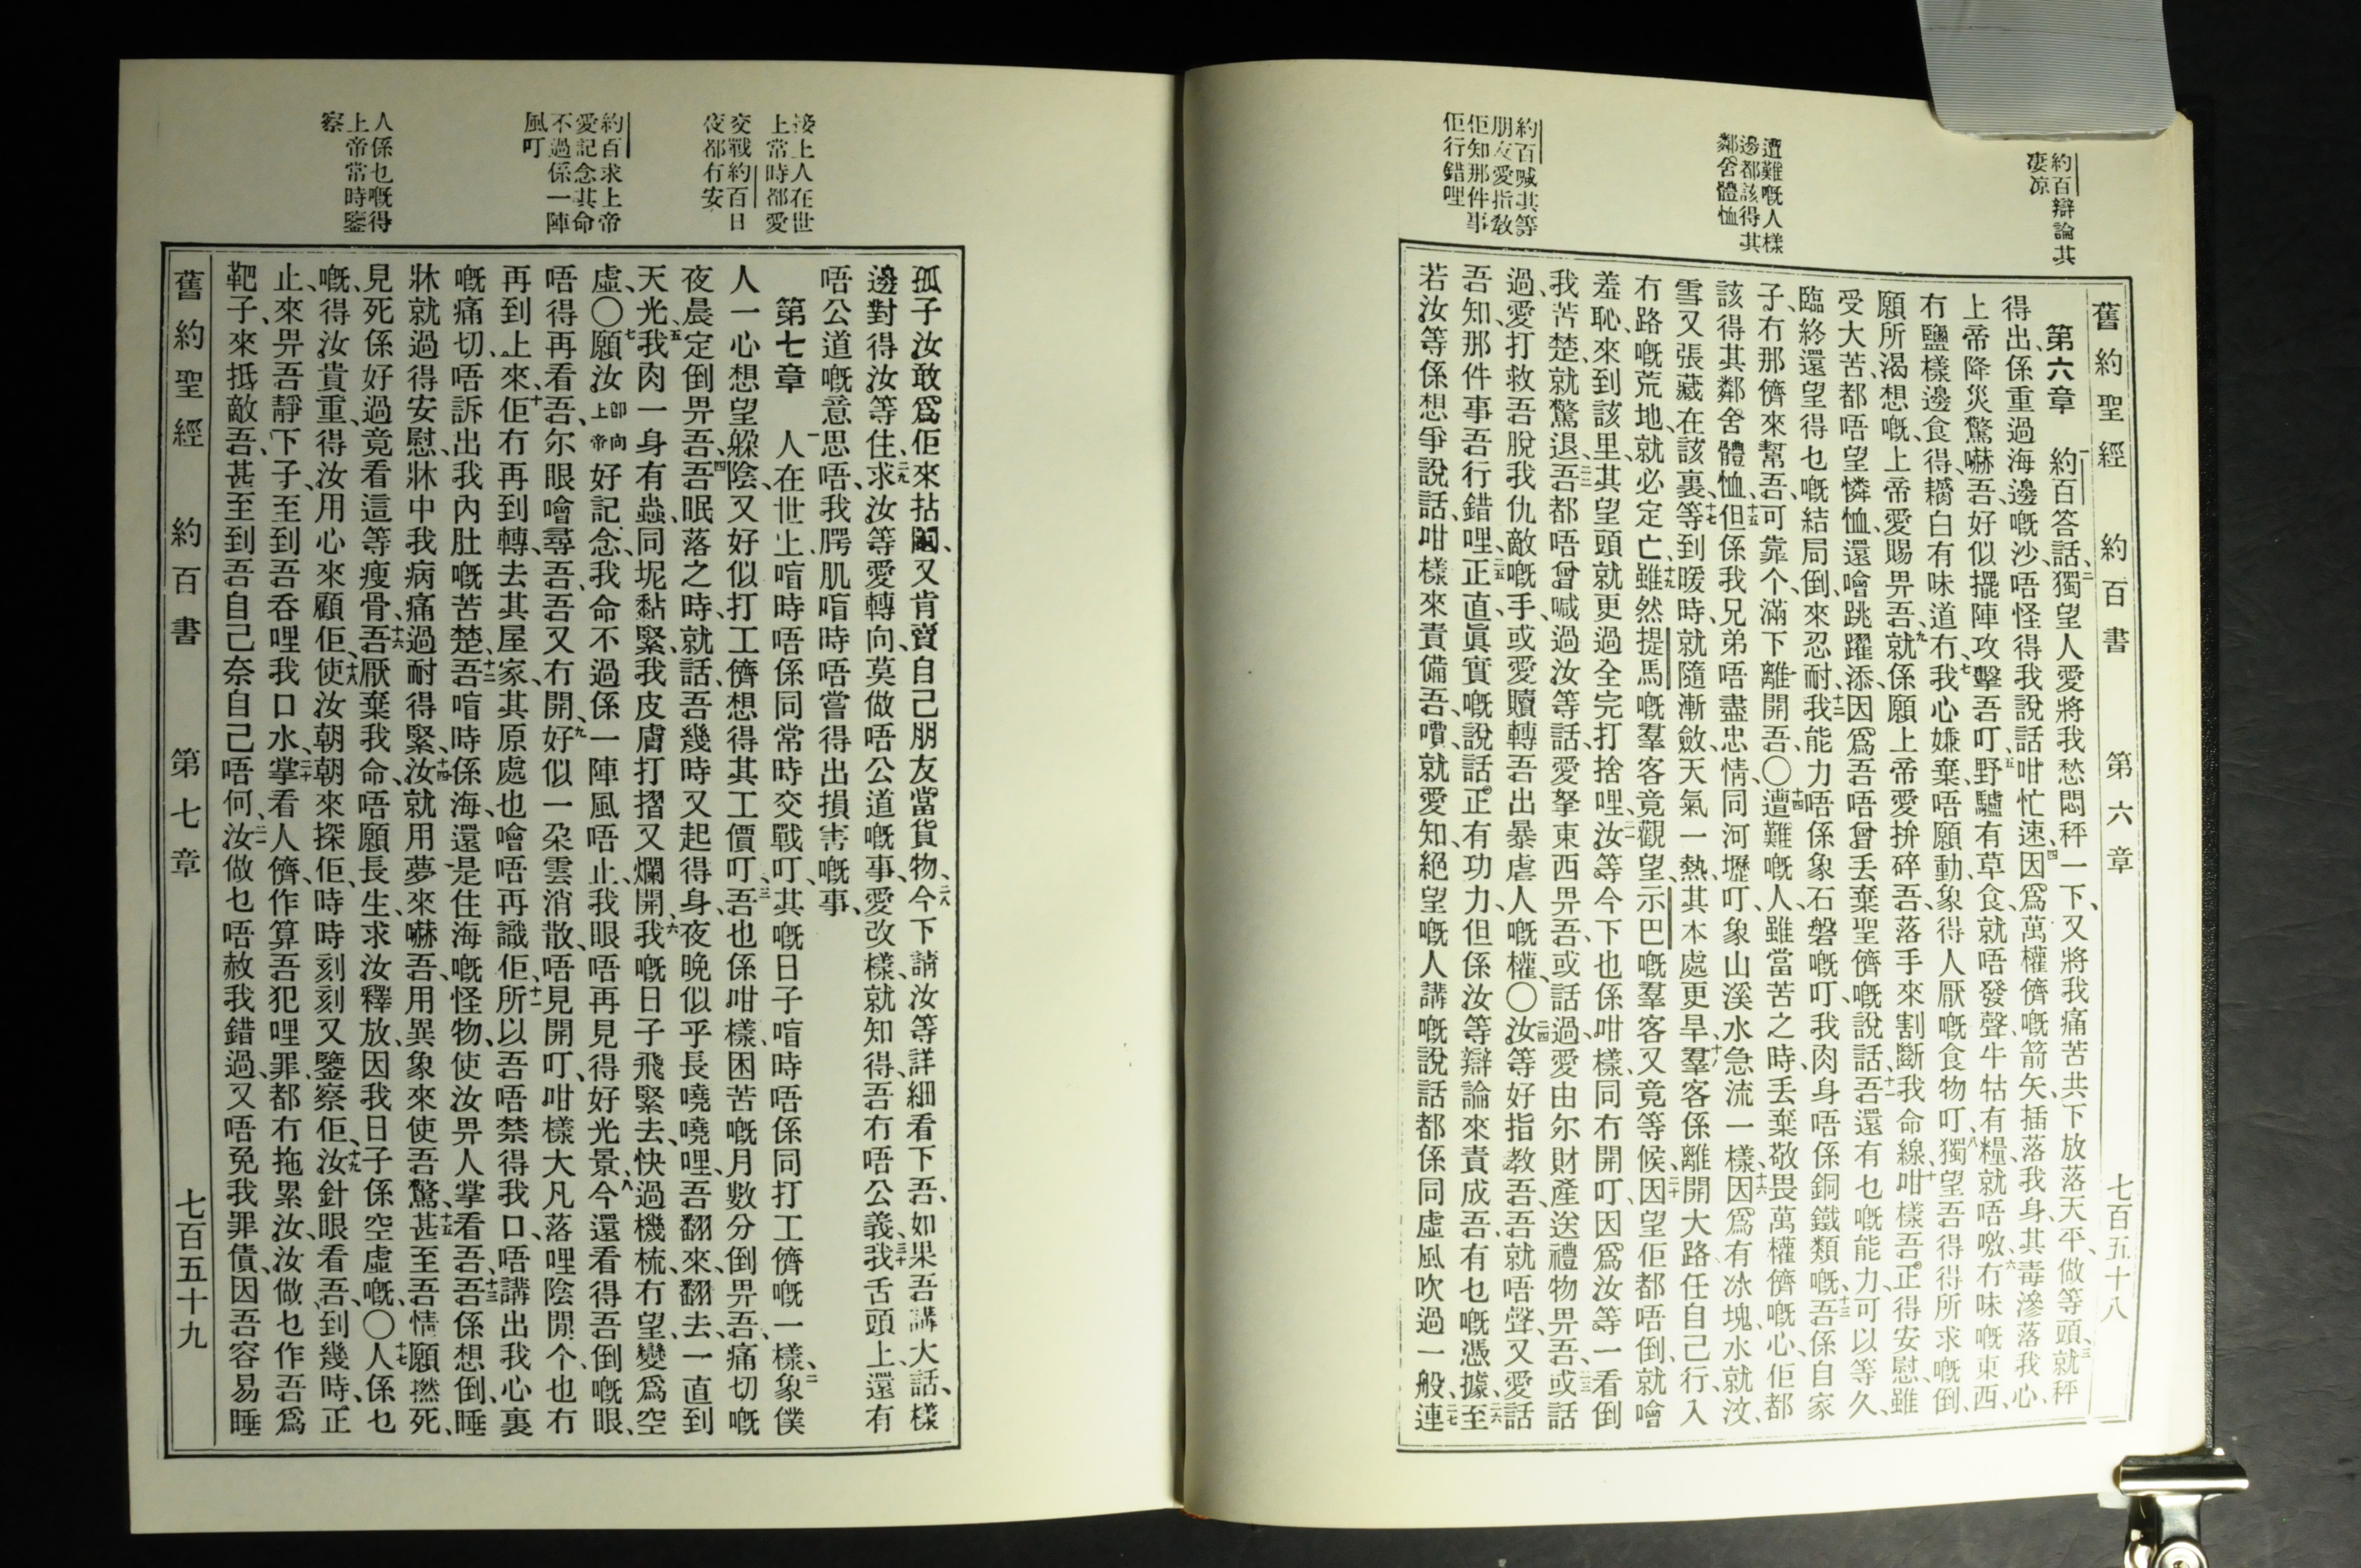 約百辯論其
凄凉
遭難嘅人樣
邊都該得其
鄰舍體恤
約百喊其等
朋友愛指敎
佢知那件事
佢行錯哩
舊約聖經 約百書 第六章 七百五十八
第六章 一約百答話、二獨望人愛將我愁悶秤一下、又將我痛苦共下放落天平、做等頭、三就秤
得出、係重過海邊嘅沙、唔怪得我說話咁忙速、四因爲萬權儕嘅箭矢、插落我身、其毒滲落我心、
上帝降災驚嚇吾、好似擺陣攻擊吾叮、五野驢有草食、就唔發聲、牛牯有糧、就唔噭、六冇味嘅東西、
冇鹽樣邊食得、鷸白有味道冇、七我心嫌棄、唔願動、象得人厭嘅食物叮、八獨望吾得得所求嘅倒、
願所渴想嘅、上帝愛賜畀吾、九就係願上帝愛拚碎吾、落手來割斷我命線、十咁樣吾正得安慰、雖
受大苦、都唔望憐恤、還噲跳躍添、因爲吾唔曾丢棄聖儕嘅說話、十一吾還有乜嘅能力、可以等久、
臨終還望得乜嘅結局倒、來忍耐、十二我能力唔係象石磐嘅叮、我肉身唔係銅鐵類嘅、十三吾係自家
子、冇那儕來幫吾、可靠个、滿下離開吾、〇十四遭難嘅人、雖當苦之時、丢棄敬畏萬權儕嘅心、佢都
該得其鄰舍體恤、十五但係我兄弟唔盡忠情、同河壢叮、象山溪水急流一樣、十六因爲有冰塊、水就汶、
雪又張藏在該裏、十七等到暖時、就隨漸斂、天氣一熱、其本處更旱、十八羣客係離開大路任自己行、入
冇路嘅荒地、就必定亡、十九雖然提馬嘅羣客竟觀望、示巴嘅羣客又竟等候、二十因望佢都唔倒、就噲
羞恥、來到該里、其望頭就更過全完打捨哩、二一汝等今下也係咁樣、同冇開叮、因爲汝等一看倒
我苦楚、就驚退、二二吾都唔曾喊過汝等話、愛拏東西畀吾、或話過、愛由尔財產送禮物畀吾、二三或話
過、愛打救吾脫我仇敵嘅手、或愛贖轉吾出暴虐人嘅權、〇二四汝等好指敎吾、吾就唔聲、又愛話
吾知、那件事吾行錯哩、二五正直眞實嘅說話、正有功力、但係汝等辯論來責成吾、有乜嘅憑據、二六至
若汝等係想爭說話、咁樣來責備吾、嘳、就愛知、絕望嘅人講嘅說話都係同虛風吹過一般、二七連
接上人在世
上常時都愛
交戰約百日
夜都冇安
約百求上帝
愛記念其命
不過係一陣
風叮
人係乜嘅得
上帝常時鑒
察
孤子汝敢爲佢來拈鬮、又肯賣自己朋友當貨物、二八今下請汝等詳細看下吾、如果吾講大話、樣
邊對得汝等住、二九求汝等愛轉向、莫做唔公道嘅事、愛改樣、就知得、吾冇唔公義、三十我舌頭上、還有
唔公道嘅意思唔、我腭肌唷時唔嘗得出損害嘅事、
第七章 一人在世上、唷時唔係同常時交戰叮、其嘅日子唷時唔係同打工儕嘅一樣、二象僕
人一心想望躲陰、又好似打工儕想得其工價叮、三吾也係咁樣、困苦嘅月數分倒畀吾、痛切嘅
夜晨定倒畀吾、四吾眠落之時、就話、吾幾時又起得身、夜晚似乎長嘵嘵哩、吾翻來、翻去、一直到
天光、五我肉一身有蟲、同坭黏緊、我皮膚打摺又爛開、六我嘅日子飛緊去、快過機梳、冇望、變爲空
虛、〇七願汝卽向上帝好記念、我命不過係一陣風唔止、我眼唔再見得好光景、八今還看得吾倒嘅眼、
唔得再看吾、尔眼噲尋吾、吾又冇開、九好似一朵雲消散、唔見開叮、咁樣大凡落哩陰間个、也冇
再到上來、十佢冇再到轉去其屋家、其原處也噲唔再識佢、十一所以吾唔禁得我口、唔講出我心裏
嘅痛切、唔訴出我內肚嘅苦楚、十二吾唷時係海、還是住海嘅怪物、使汝畀人掌看吾、十三吾係想倒、睡
牀就過得安慰、牀中我病痛過耐得緊、十四汝就用夢來嚇吾、用異象來使吾驚、十五甚至吾情願撚死、
見死係好過、竟看這等瘦骨、十六吾厭棄我命、唔願長生、求汝釋放、因我日子係空虛嘅、〇十七人係乜
嘅、得汝貴重、得汝用心來顧佢、十八使汝朝朝來探佢、時時刻刻又鑒察佢、十九汝針眼看吾、到幾時、正
止、來畀吾靜下子、至到吾吞哩我口水、二十掌看人儕、作算吾犯哩罪、都冇拖累汝、汝做乜作吾爲
靶子、來抵敵吾、甚至到吾自己奈自己唔何、二一汝做乜唔赦我錯過、又唔免我罪債、因吾容易睡
舊約聖經 約百書 第七章 七百五十九